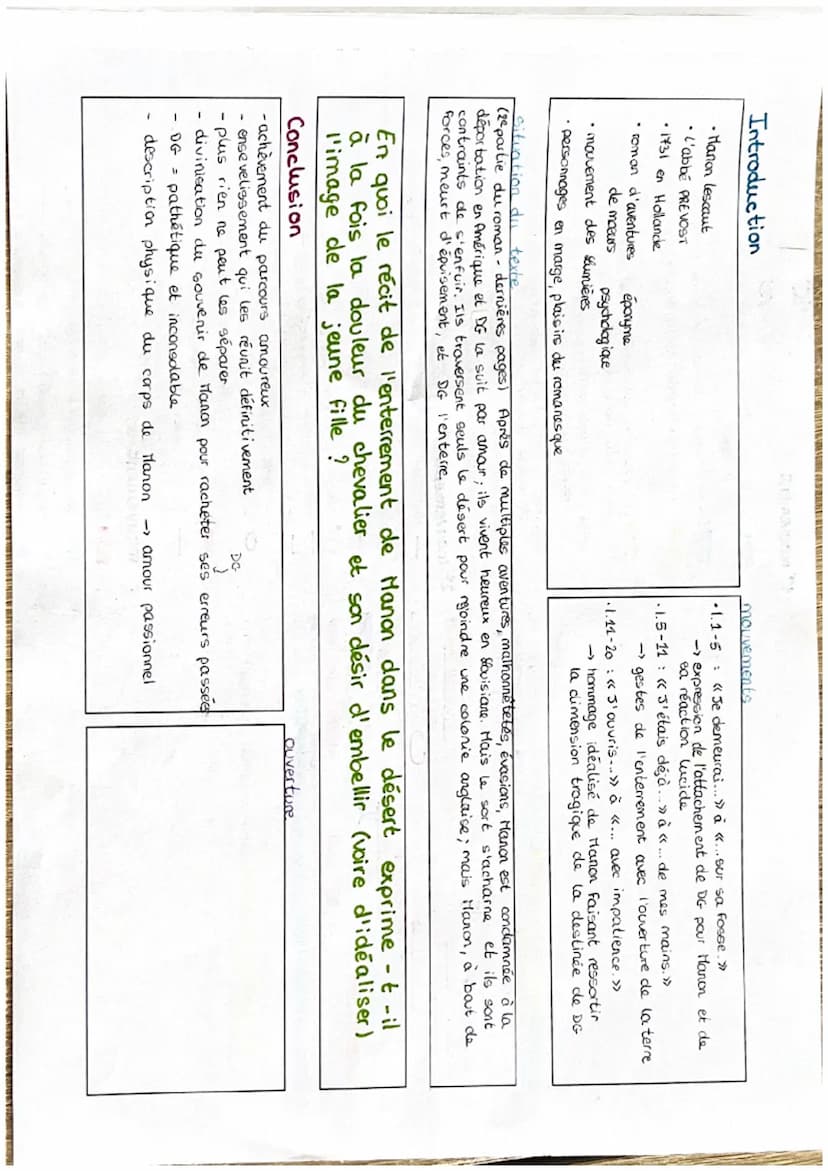 Introduction
• Manon Lescaut
• L'abbé PREVOST
• 1731 en Hollande
• roman d'aventures éponyme
de mœurs psychologique
• mouvement des lumières
• personnages en marge, plaisirs du romanesque
mouvements
• l.1-5 : « Je demeurai... » à «...sur sa fosse.»
→ expression de l'attachement de DG pour Manon et de
sa réaction lucide
• l.5-11 : « J'étais déjà...» à «... de mes mains.»
→ gestes de l'enterrement avec l'ouverture de la terre
• l.11-20 : « J'ouvris...» à «... avec impatience.»
→ hommage idéalisé de Manon faisant ressortir
la dimension tragique de la destinée de DG
situation du texte
(2e partie du roman - dernières pages) Après de multiples aventures, malhonnêtetés, évasions, Manon est condamnée à la
déportation en Amérique et DG la suit par amour ; ils vivent heureux en Louisiane. Mais le sort s'acharne et ils sont
contraints de s'enfuir. Ils traversent seuls le désert pour rejoindre une colonie anglaise ; mais Manon, à bout de
forces, meurt d'épuisement, et DG l'enterre.
En quoi le récit de l'enterrement de Manon dans le désert exprime-t-il
à la fois la douleur du chevalier et son désir d'embellir (voire d'idéaliser)
l'image de la jeune fille ?
Conclusion
- achèvement du parcours amoureux
- ensevelissement qui les réunit définitivement
- plus rien ne peut les séparer
DG
- divinisation du souvenir de Manon pour racheter ses erreurs passées
- DG = pathétique et inconsolable
- description physique du corps de Manon → amour passionnel
ouverture